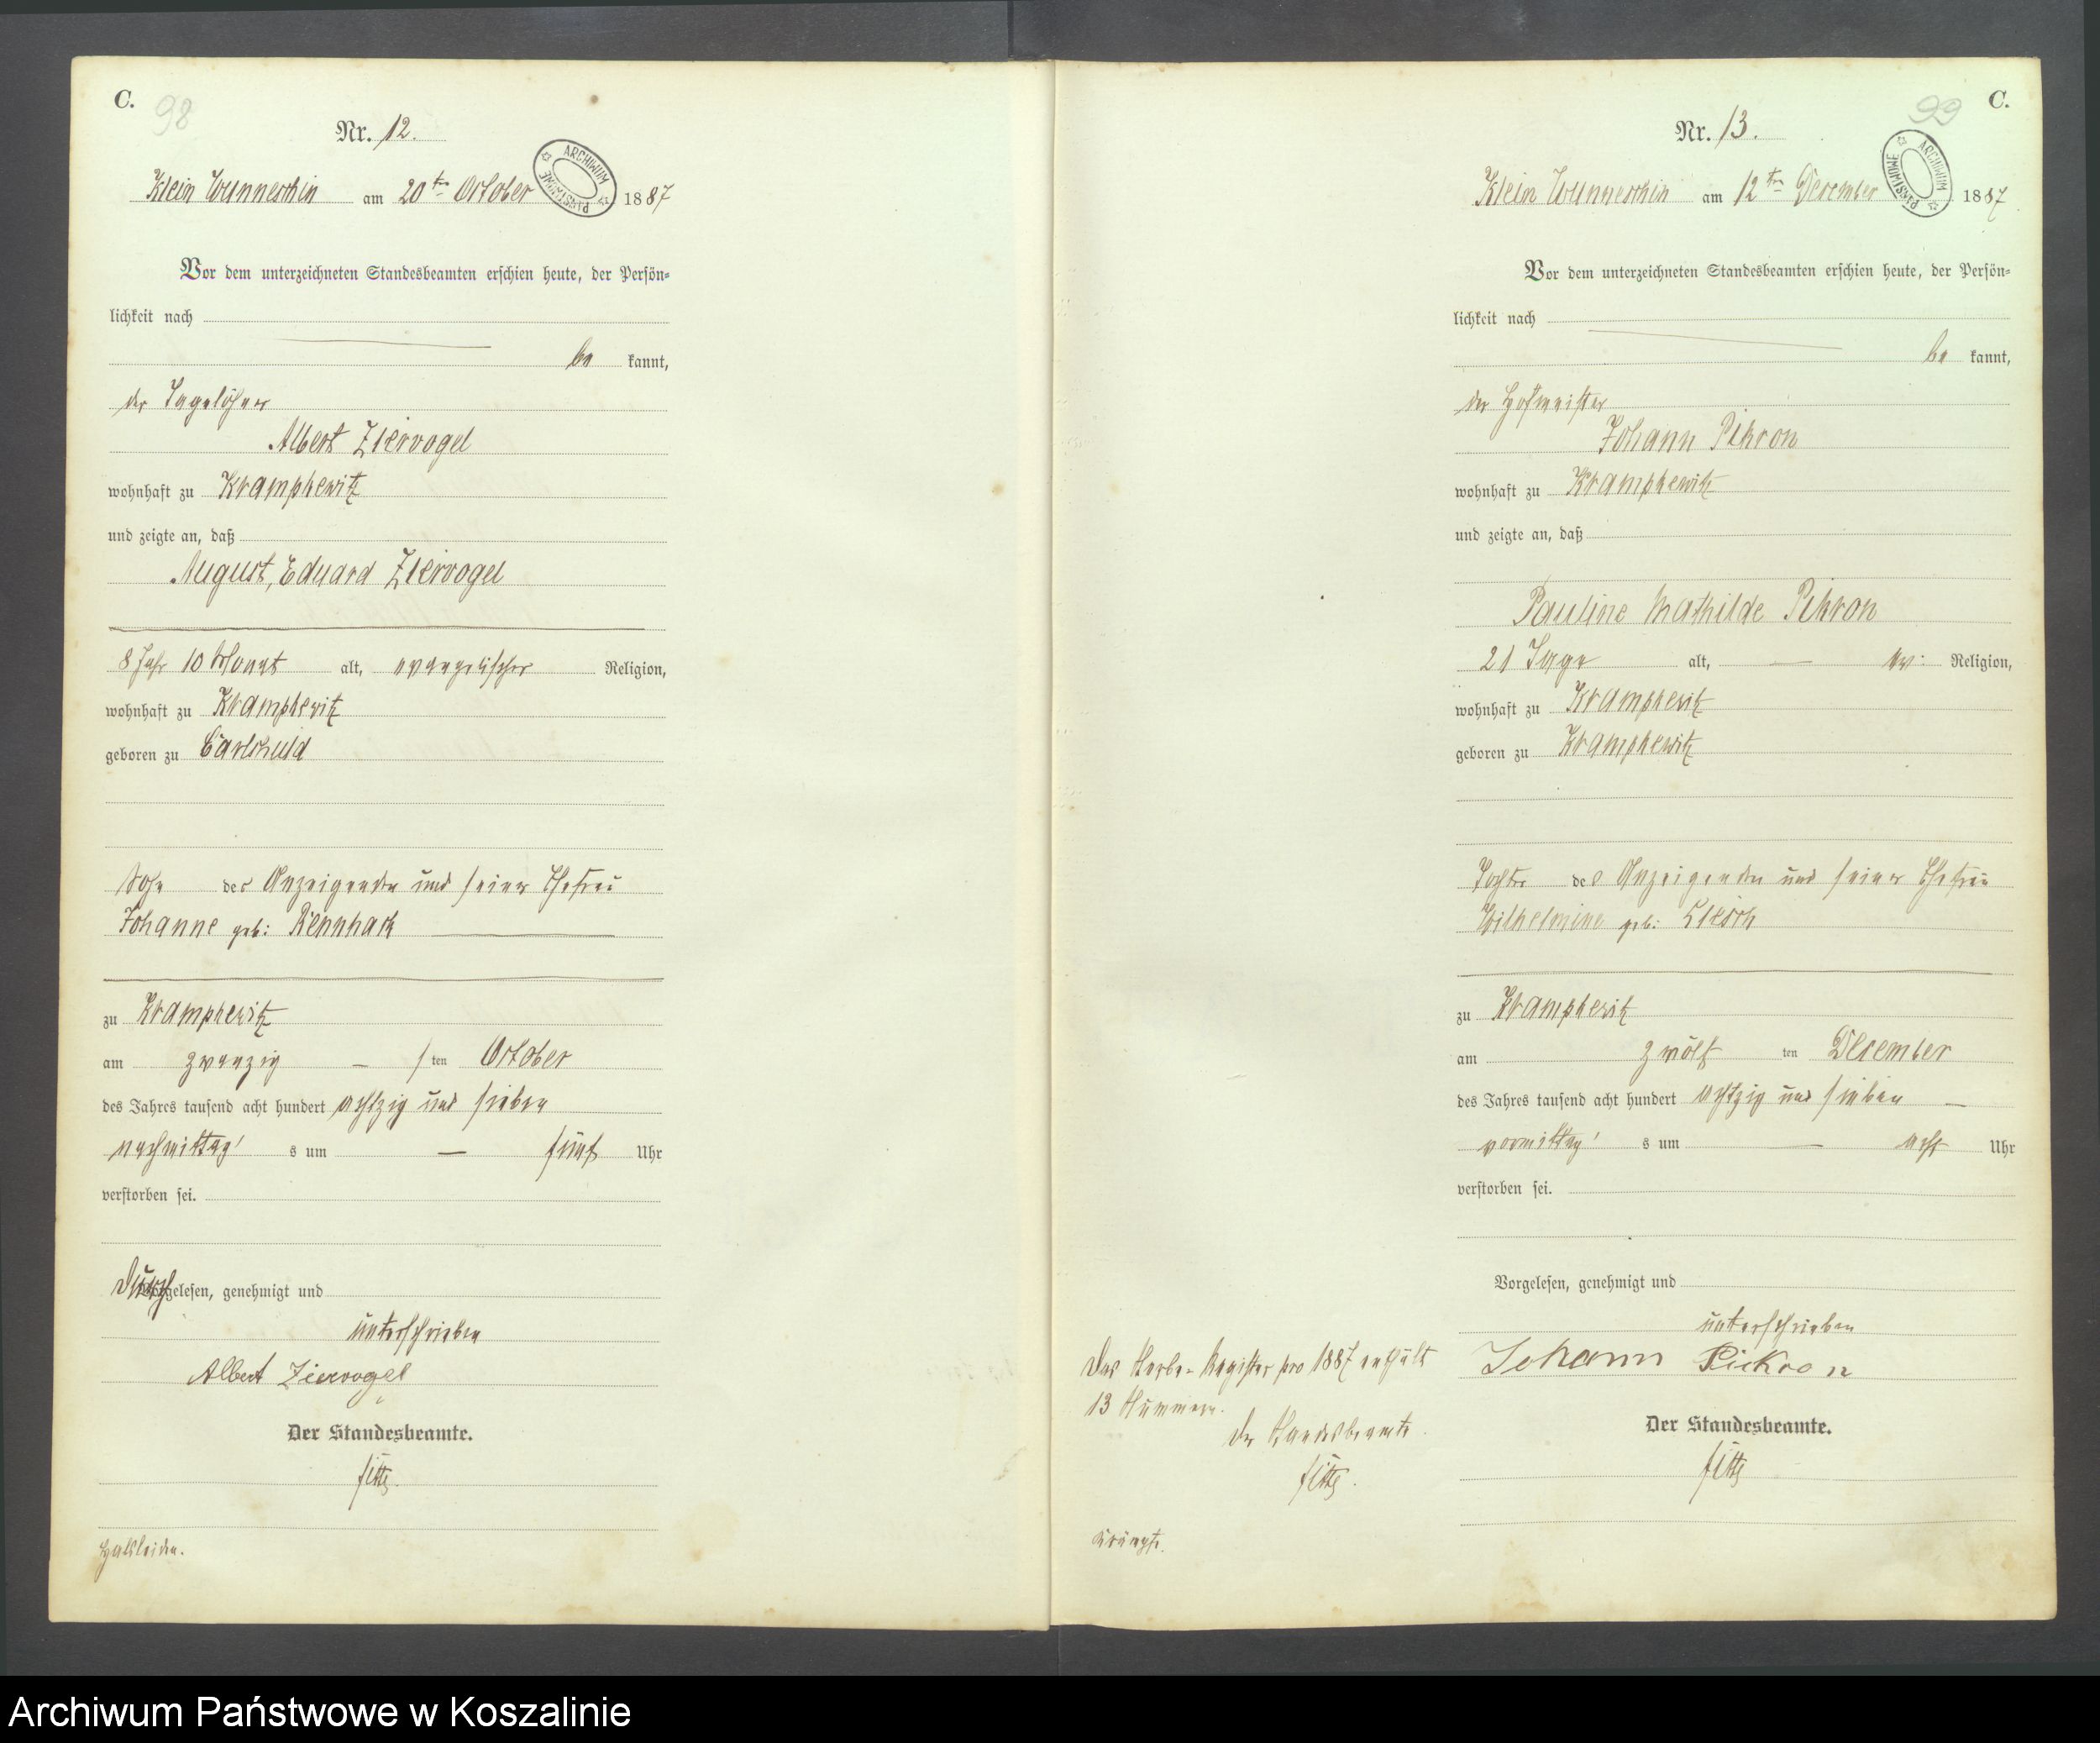 C.
98
Nr. 12.
ARCHIWUM PAŃSTWOWE
Klein Wunneschin am 20ten October 1887
Vor dem unterzeichneten Standesbeamten erschien heute, der Persön-
lichkeit nach
be kannt,
der Tagelöhner
Albert Ziervogel
wohnhaft zu Krampkewitz
und zeigte an, daß
August, Eduard Ziervogel
8 Jahr 10 Monat alt, evangelischer Religion,
wohnhaft zu Krampkewitz
geboren zu
Sohn des Anzeigenden und seiner Ehefrau
Johanne geb: Rennhack
zu Krampkewitz
am zwanzig ten October
des Jahres tausend acht hundert achtzig und sieben
nachmittag's um fünf Uhr
verstorben sei.
Durchgelesen, genehmigt und
unterschrieben
Albert Ziervogel
Der Standesbeamte.
Halsleiden.
99
C.
Nr. 13.
ARCHIWUM PAŃSTWOWE
Klein Wunneschin am 12ten December 1887
Vor dem unterzeichneten Standesbeamten erschien heute, der Persön-
lichkeit nach
be kannt,
der Hofmeister
Johann Pikron
wohnhaft zu Krampkewitz
und zeigte an, daß
Pauline Mathilde Pikron
21 Tage alt, ev: Religion,
wohnhaft zu Krampkewitz
geboren zu Krampkewitz
Tochter des Anzeigenden und seiner Ehefrau
Wilhelmine geb: Liesch
zu Krampkewitz
am zwölf ten December
des Jahres tausend acht hundert achtzig und sieben
vormittag's um acht Uhr
verstorben sei.
Vorgelesen, genehmigt und
unterschrieben
Johann Piekron
Der Standesbeamte.
Das Sterbe-Register pro 1887 enthält
13 Nummern.
Der Standesbeamte
Krämpfe.
Archiwum Państwowe w Koszalinie